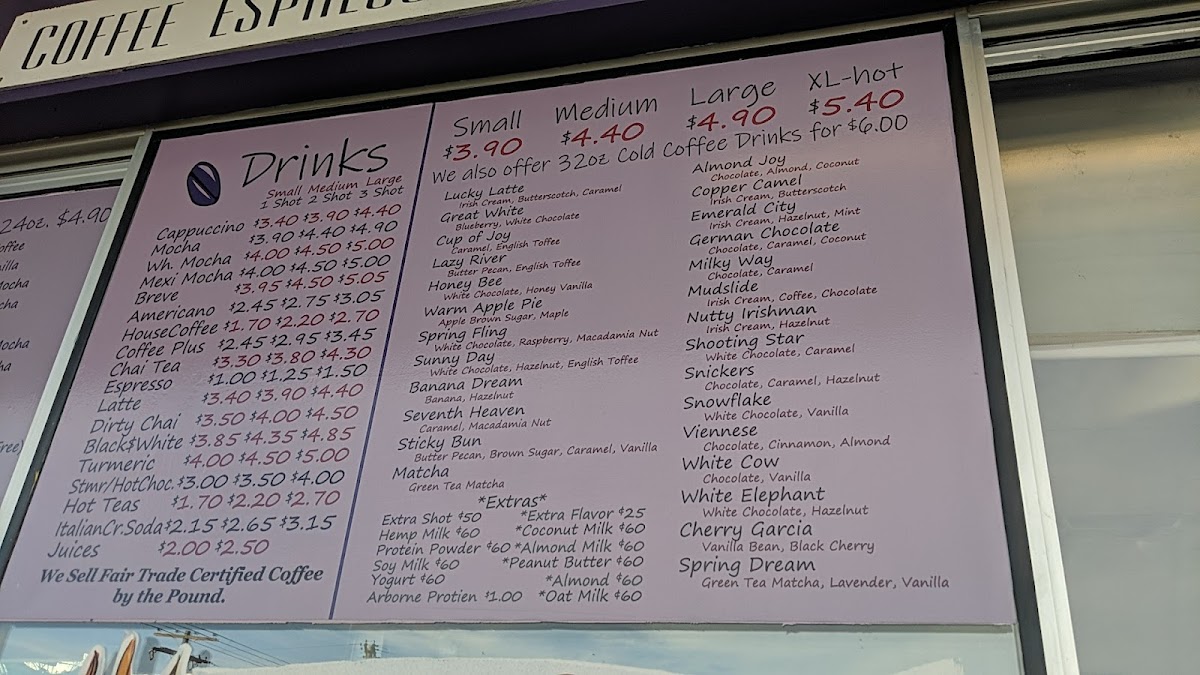 COFFEE ESPRESS
24oz. $4.90
Drinks
Small Medium Large
1 Shot 2 Shot 3 Shot
Cappuccino $3.40 $3.90 $4.40
Mocha $3.90 $4.40 $4.90
Wh. Mocha $4.00 $4.50 $5.00
Mexi Mocha $4.00 $4.50 $5.00
Breve $3.95 $4.50 $5.05
Americano $2.45 $2.75 $3.05
HouseCoffee $1.70 $2.20 $2.70
Coffee Plus $2.45 $2.95 $3.45
Chai Tea $3.30 $3.80 $4.30
Espresso $1.00 $1.25 $1.50
Latte $3.40 $3.90 $4.40
Dirty Chai $3.50 $4.00 $4.50
Black$White $3.85 $4.35 $4.85
Turmeric $4.00 $4.50 $5.00
Stmr/HotChoc. $3.00 $3.50 $4.00
Hot Teas $1.70 $2.20 $2.70
ItalianCr.Soda $2.15 $2.65 $3.15
Juices $2.00 $2.50
We Sell Fair Trade Certified Coffee
by the Pound.
Small Medium Large XL-hot
$3.90 $4.40 $4.90 $5.40
We also offer 32oz Cold Coffee Drinks for $6.00
Lucky Latte
Irish Cream, Butterscotch, Caramel
Great White
Blueberry, White Chocolate
Cup of Joy
Caramel, English Toffee
Lazy River
Butter Pecan, English Toffee
Honey Bee
White Chocolate, Honey Vanilla
Warm Apple Pie
Apple Brown Sugar, Maple
Spring Fling
White Chocolate, Raspberry, Macadamia Nut
Sunny Day
White Chocolate, Hazelnut, English Toffee
Banana Dream
Banana, Hazelnut
Seventh Heaven
Caramel, Macadamia Nut
Sticky Bun
Butter Pecan, Brown Sugar, Caramel, Vanilla
Matcha
Green Tea Matcha
*Extras*
Extra Shot ¢50 *Extra Flavor ¢25
Hemp Milk ¢60 *Coconut Milk ¢60
Protein Powder ¢60 *Almond Milk ¢60
Soy Milk ¢60 *Peanut Butter ¢60
Yogurt ¢60 *Almond ¢60
Arborne Protien $1.00 *Oat Milk ¢60
Almond Joy
Chocolate, Almond, Coconut
Copper Camel
Irish Cream, Butterscotch
Emerald City
Irish Cream, Hazelnut, Mint
German Chocolate
Chocolate, Caramel, Coconut
Milky Way
Chocolate, Caramel
Mudslide
Irish Cream, Coffee, Chocolate
Nutty Irishman
Irish Cream, Hazelnut
Shooting Star
White Chocolate, Caramel
Snickers
Chocolate, Caramel, Hazelnut
Snowflake
White Chocolate, Vanilla
Viennese
Chocolate, Cinnamon, Almond
White Cow
Chocolate, Vanilla
White Elephant
White Chocolate, Hazelnut
Cherry Garcia
Vanilla Bean, Black Cherry
Spring Dream
Green Tea Matcha, Lavender, Vanilla